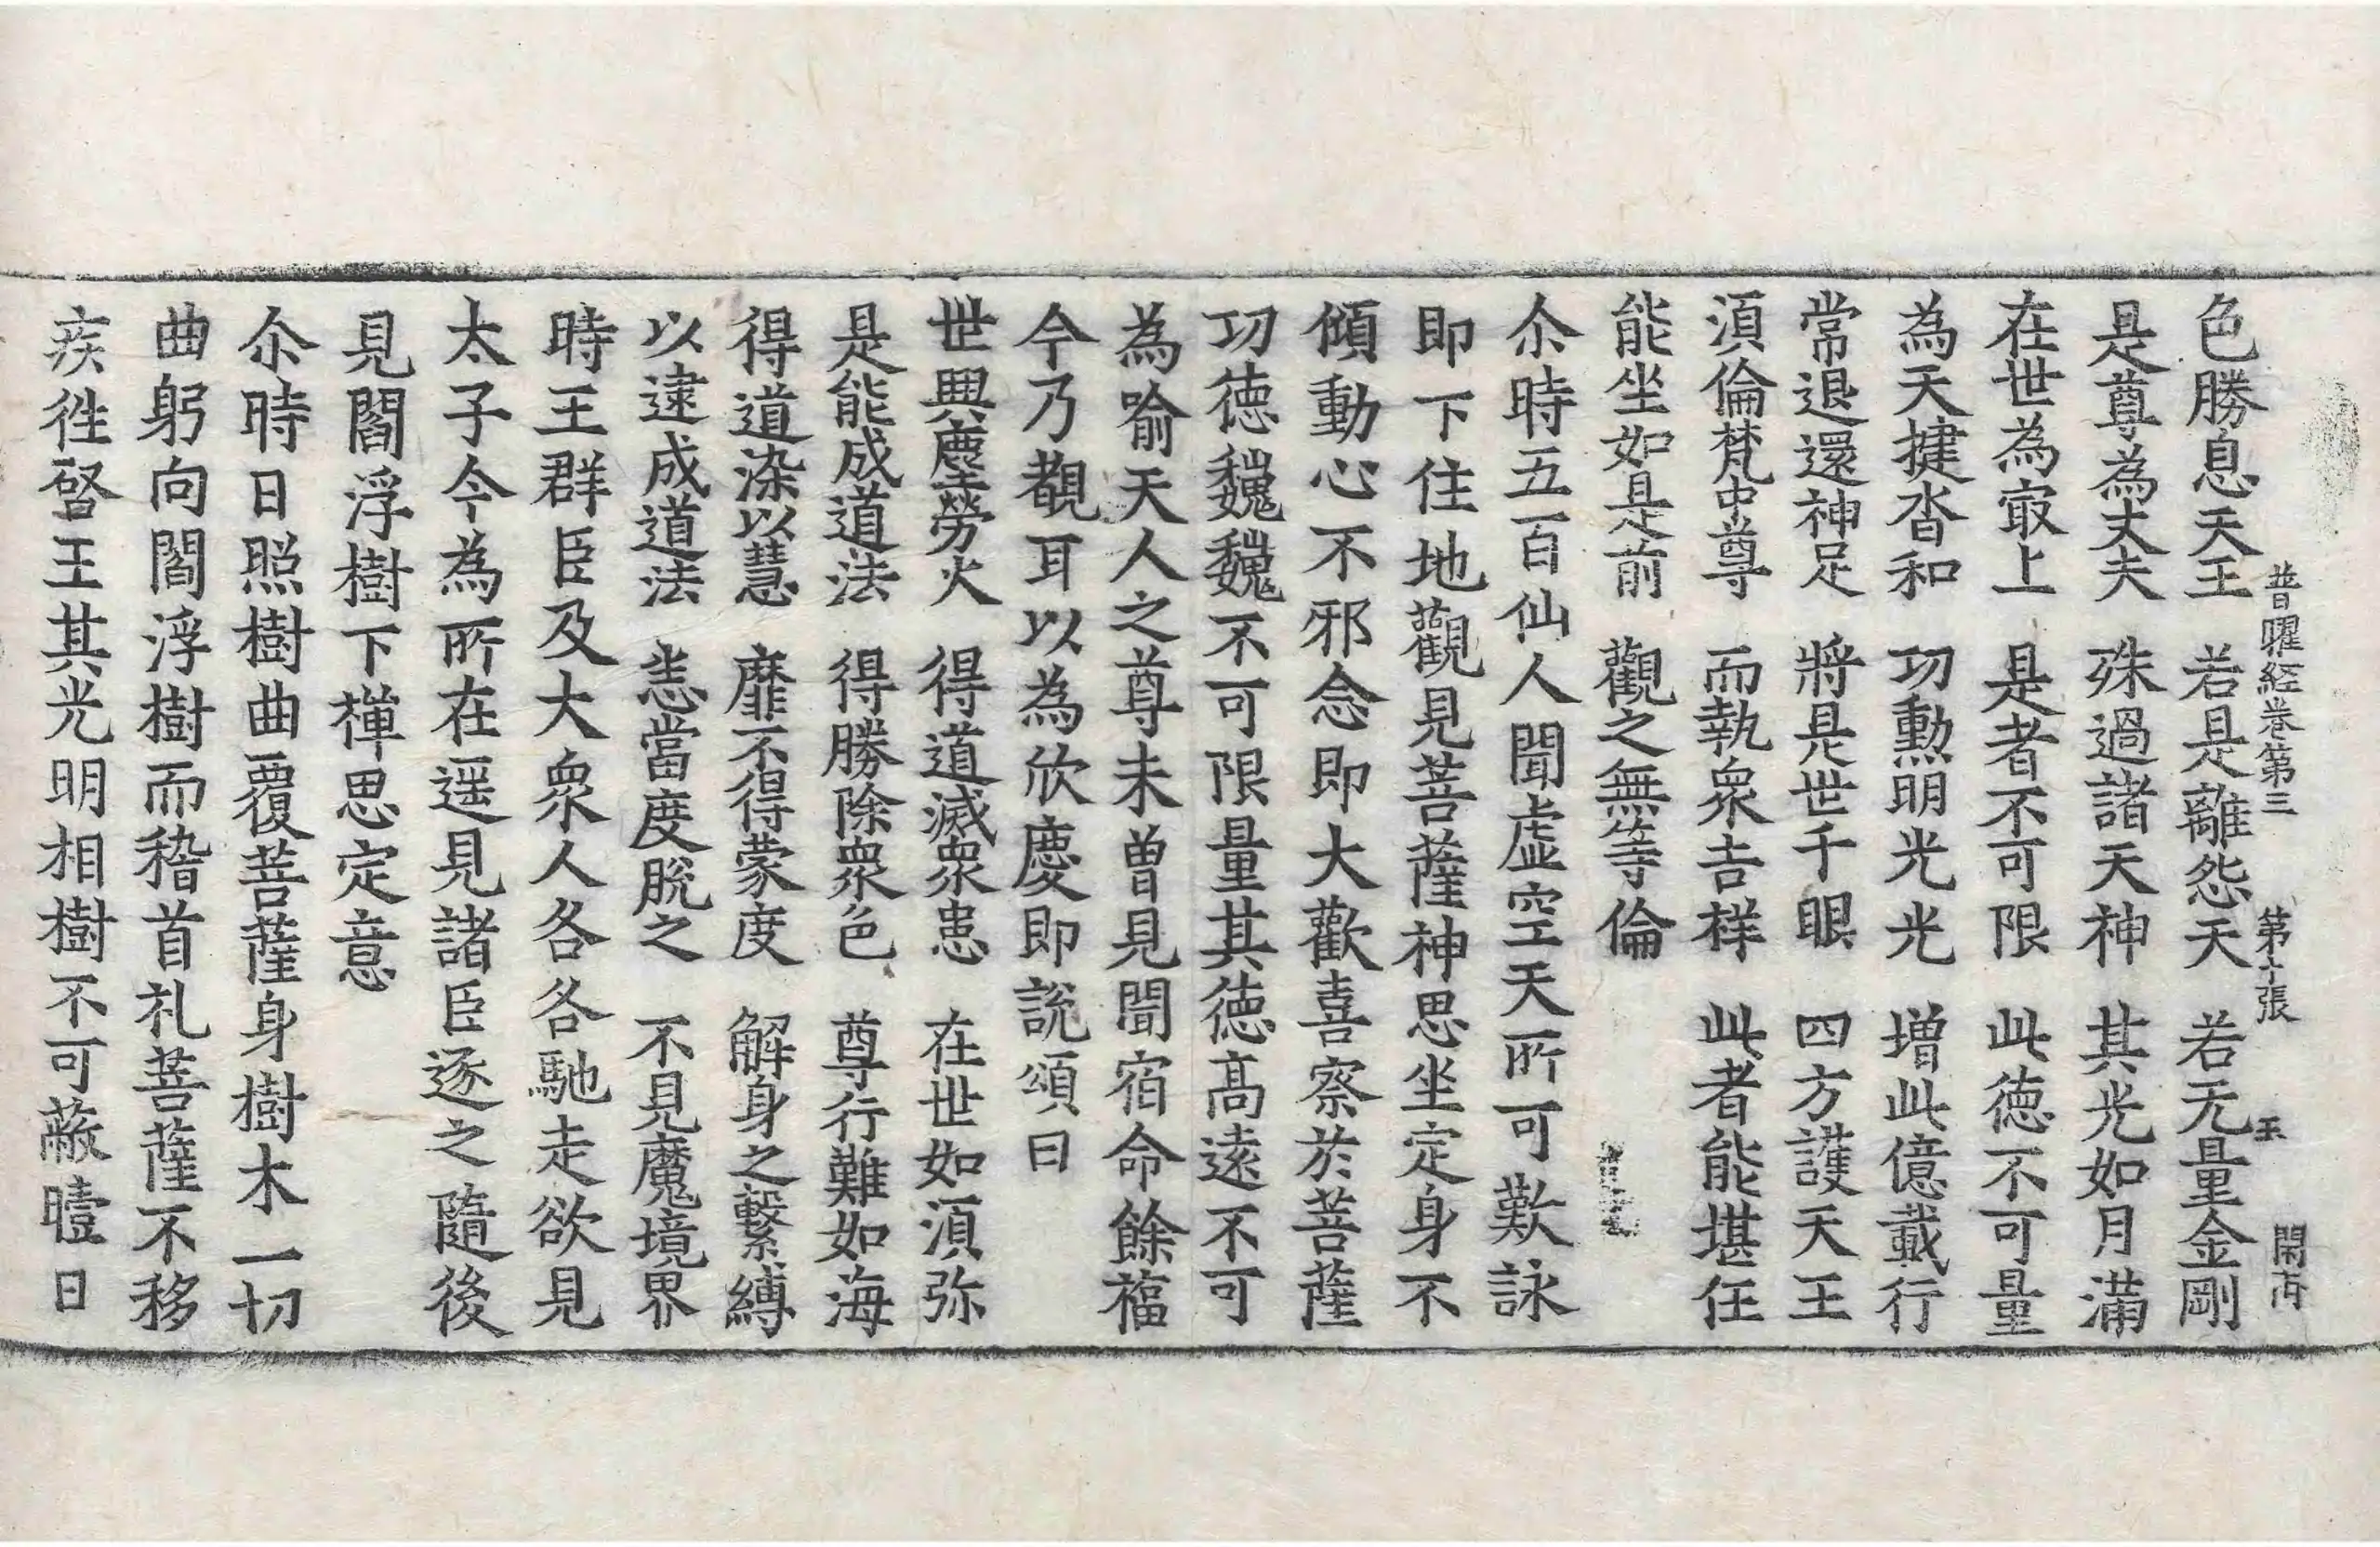 普曜経卷第三　第十張　王　開㐮
色勝息天王　若是離怨天　若无量金剛
是尊為丈夫　殊過諸天神　其光如月滿
在世為冣上　是者不可限　此德不可量
為天揵沓和　功勲明光光　增此億載行
常退還神足　將是世千眼　四方護天王
湏倫梵中尊　而執衆吉祥　此者能堪任
能坐如是前　觀之無等倫
尒時五百仙人聞虛空天所可歎詠
即下住地觀見菩薩神思坐定身不
傾動心不邪念即大歡喜察於菩薩
功德巍巍不可限量其德高遠不可
為喻天人之尊未曾見聞宿命餘福
今乃覩耳以為欣慶即說頌曰
世興塵勞火　得道滅衆患　在世如湏弥
是能成道法　得勝除衆色　尊行難如海
得道染以慧　靡不得蒙度　解身之繫縛
以逮成道法　恚當度脫之　不見魔境界
時王群臣及大衆人各各馳走欲見
太子今為所在遥見諸臣逐之隨後
見閻浮樹下禪思定意
尒時日照樹曲覆菩薩身樹木一切
曲躬向閻浮樹而稽首礼菩薩不移
疾徃啓王其光明相樹不可蔽曀日